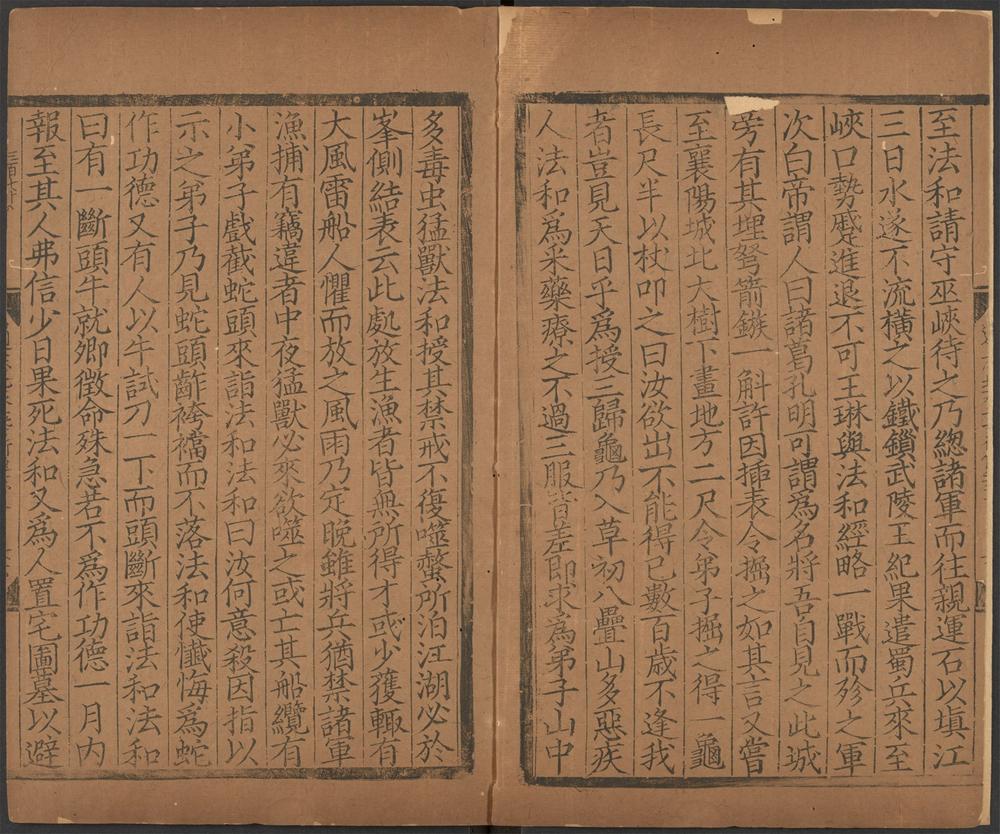 至法和請守巫峽待之乃總諸軍而往親運石以塡江
三日水遂不流橫之以鐵鎖武陵王紀果遣蜀兵來至
峽口勢蹙進退不可王琳與法和經略一戰而殄之軍
次白帝謂人曰諸葛孔明可謂爲名將吾自見之此城
旁有其埋弩箭鏃一斛許因揷表令掘之如其言又嘗
至襄陽城北大樹下畫地方二尺令弟子掘之得一龜
長尺半以杖叩之曰汝欲出不能得已數百歳不逢我
者豈見天日乎爲授三歸龜乃入草初八疊山多惡疾
人法和爲采藥療之不過三服皆差即求爲弟子山中
多毒虫猛獸法和授其禁戒不復噬螫所泊江湖必於
峯側結表云此處放生漁者皆無所得才或少獲輙有
大風雷船人懼而放之風雨乃定晚雖將兵猶禁諸軍
漁捕有竊違者中夜猛獸必來欲噬之或亡其船纜有
小弟子戲截蛇頭來詣法和法和曰汝何意殺因指以
示之弟子乃見蛇頭齚袴襠而不落法和使懺悔爲蛇
作功德又有人以牛試刀一下而頭斷來詣法和法和
曰有一斷頭牛就卿徵命殊急若不爲作功德一月内
報至其人弗信少日果死法和又爲人置宅圖墓以避